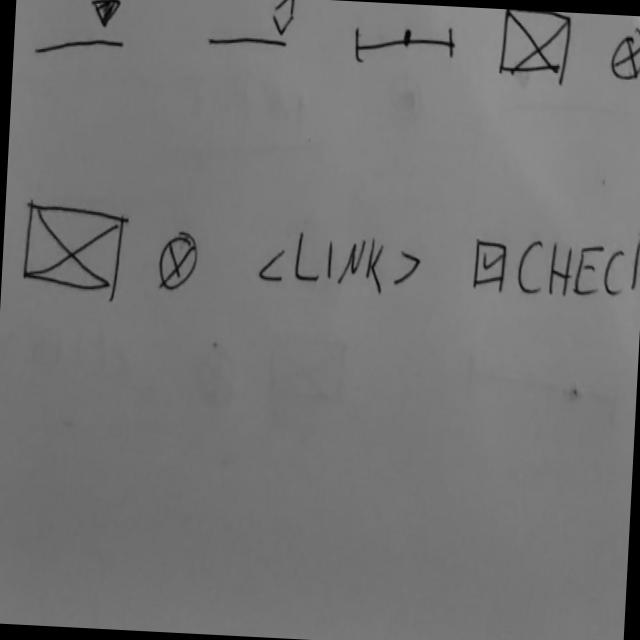 <LINK> CHEC